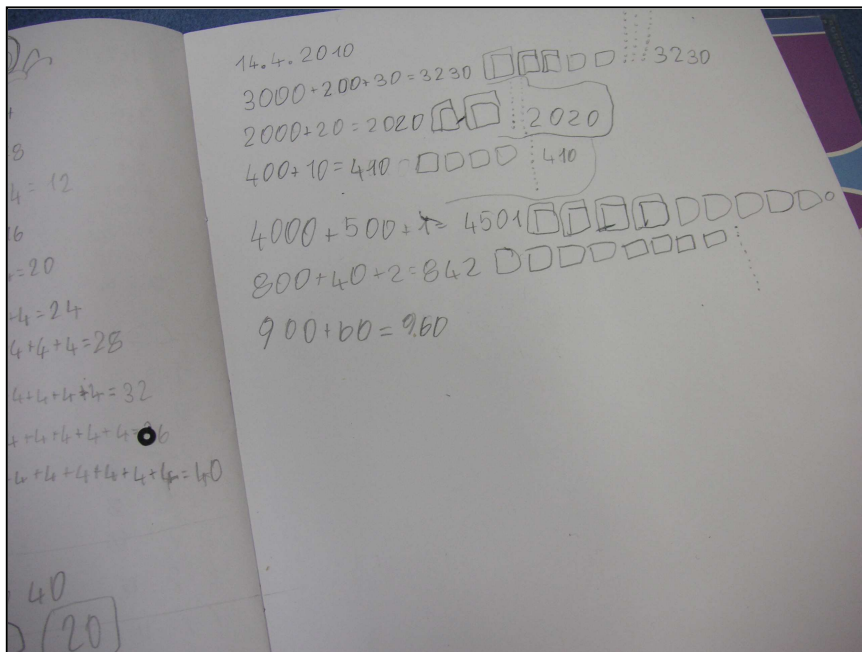 8
4 = 12
16
= 20
+4 = 24
4+4+4 = 28
4+4+4+4 = 32
+4+4+4+4=36
4+4+4+4+4+4=40
40
20
14.4.2010
3000+200+30=3230 3230
2000+20=2020 2020
400+10=410 410
4000+500+1= 4501
800+40+2=842
900+60=960